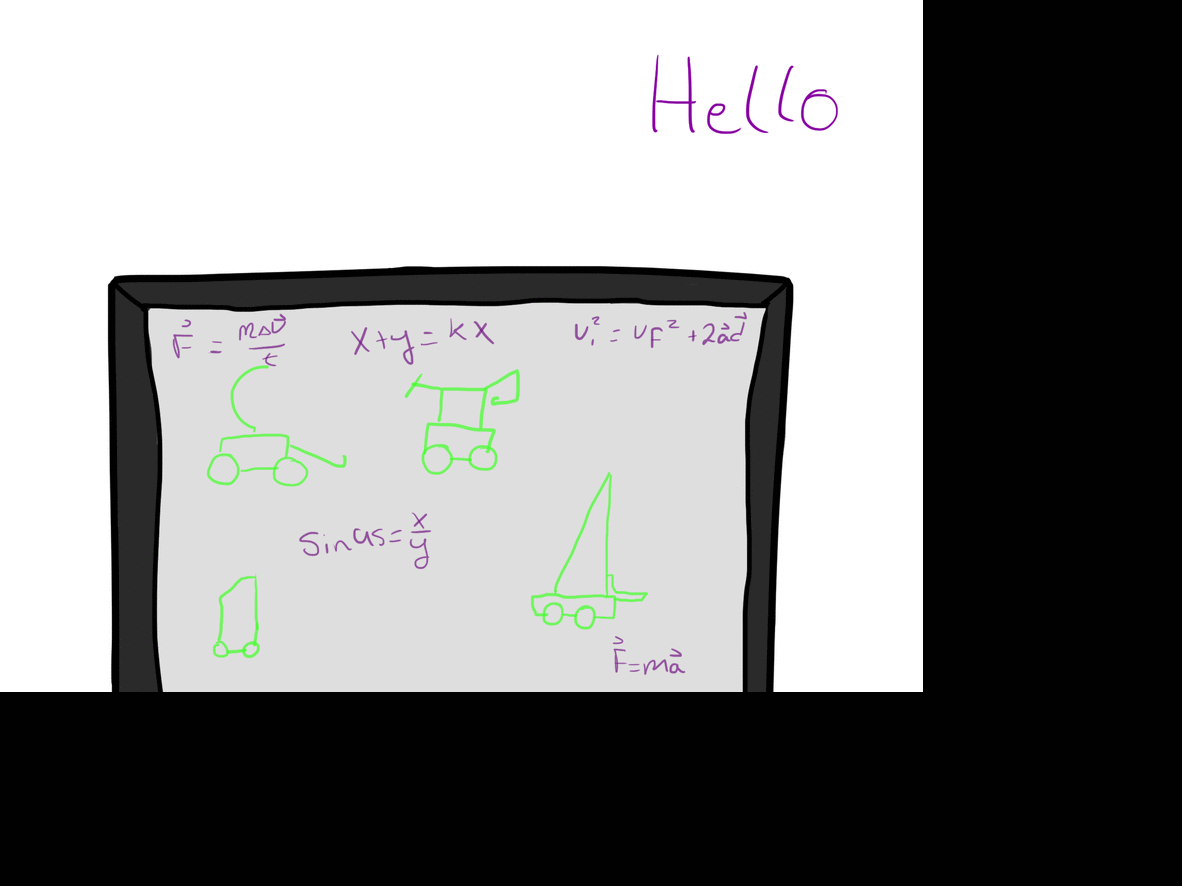 Hello
F⃗ = mΔv⃗/t
x+y=kx
v₁²=vF²+2a⃗d⃗
sin45=x/y
F⃗=ma⃗